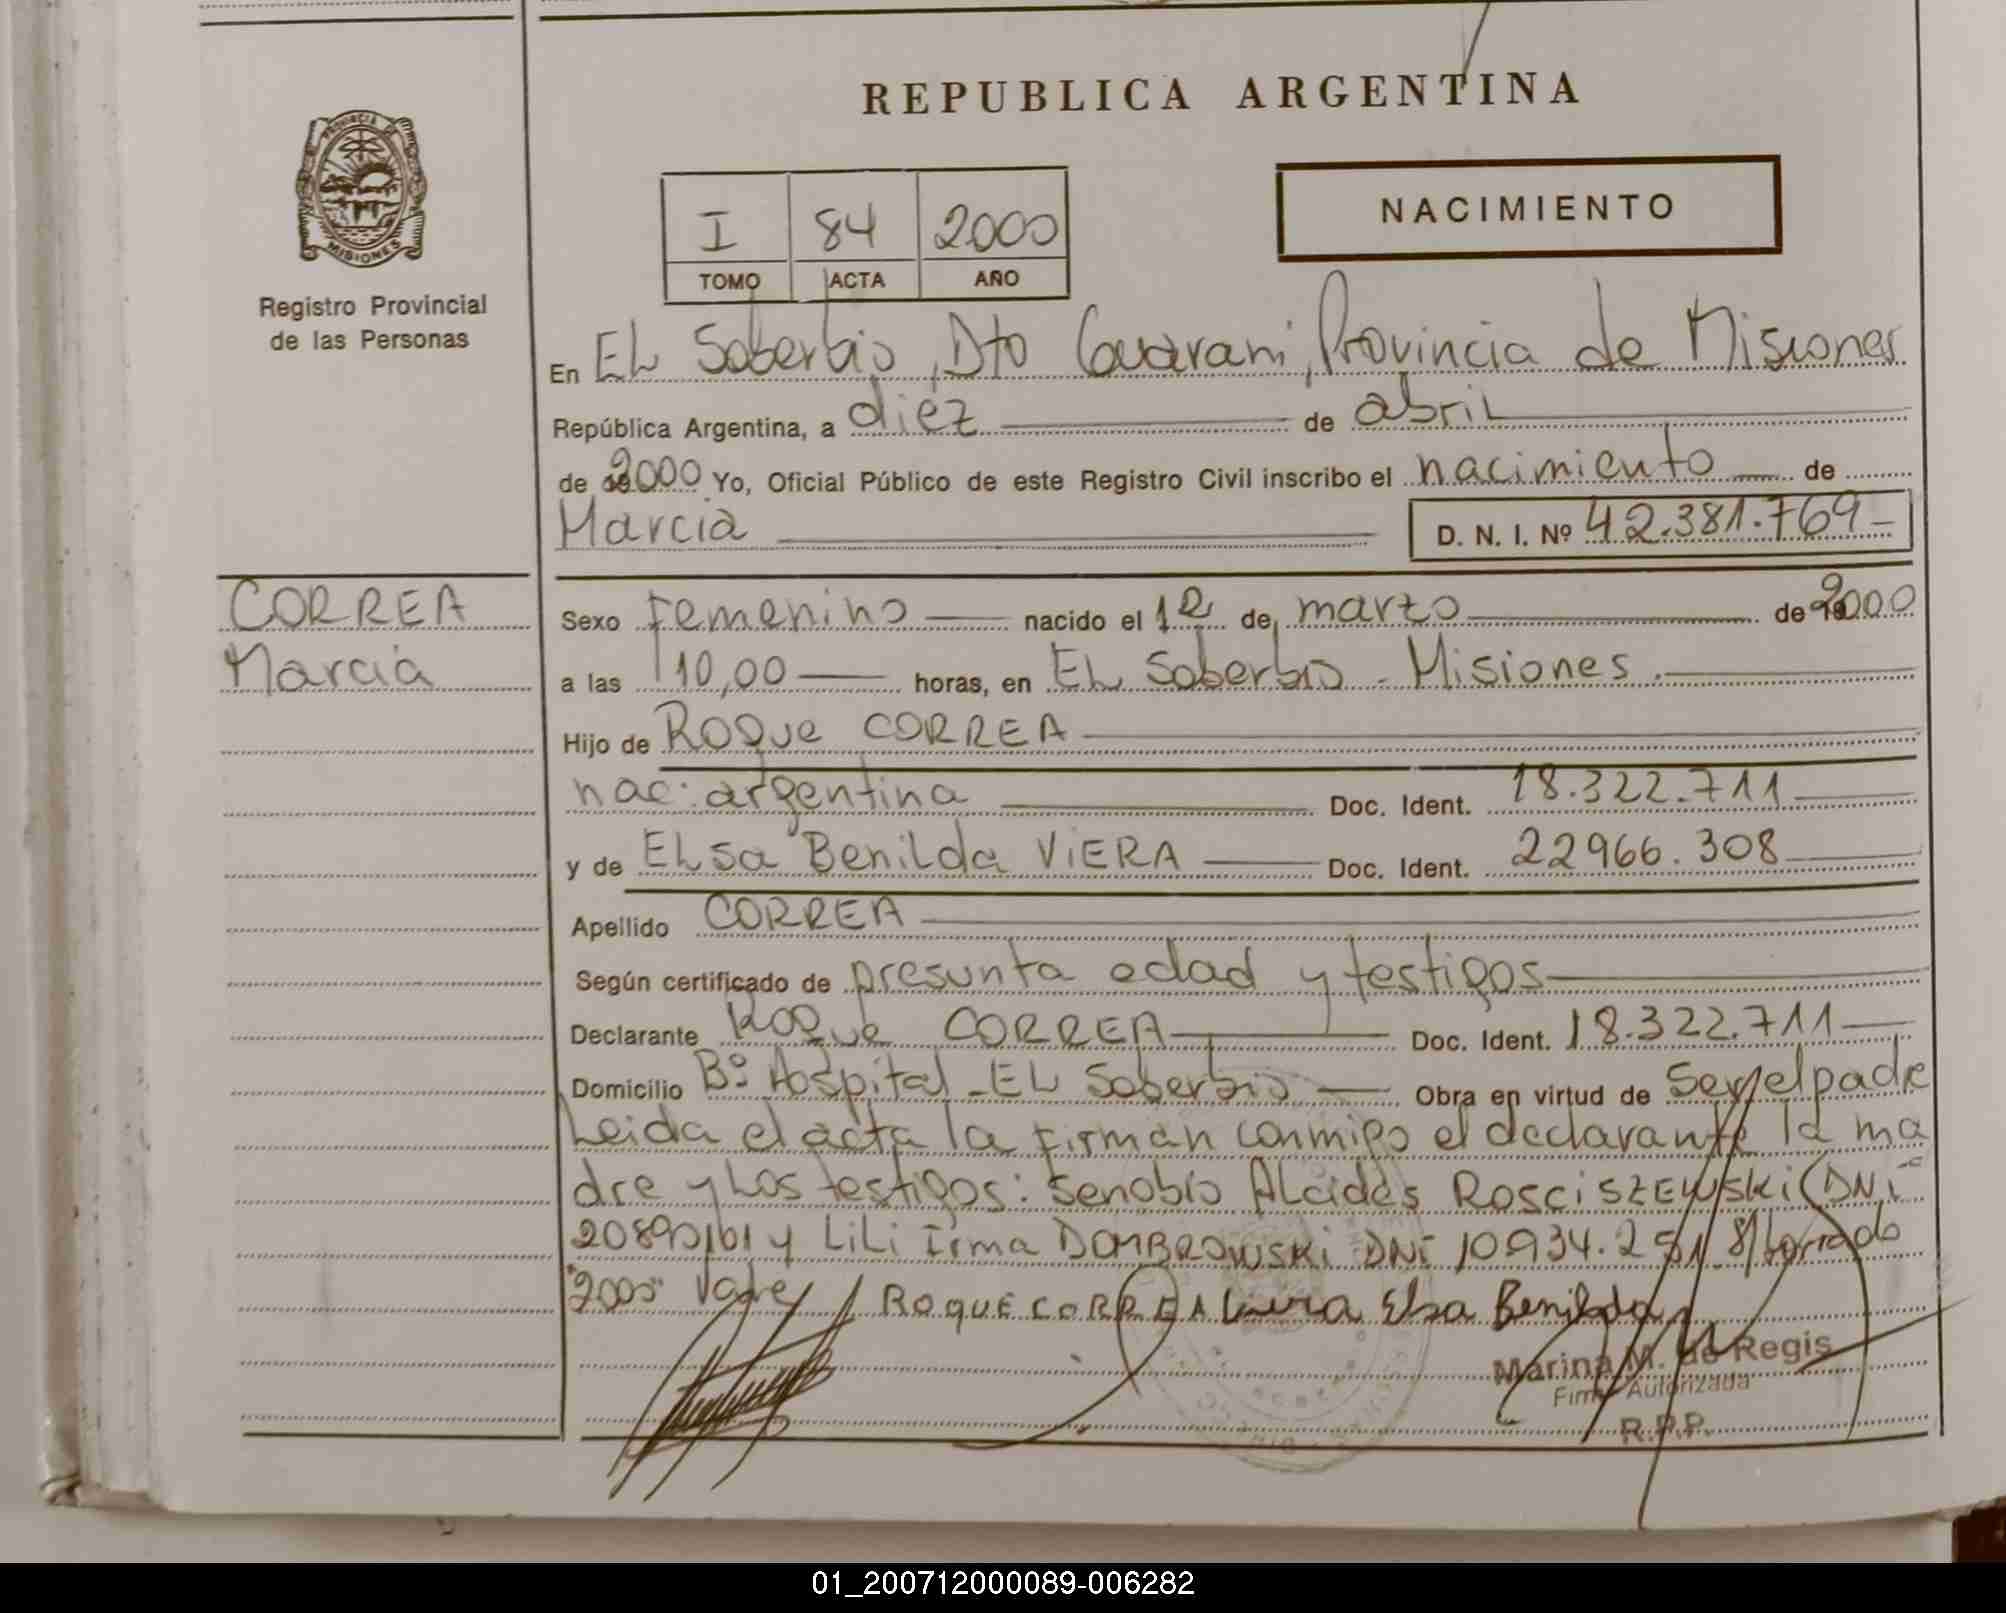 REPUBLICA ARGENTINA
PROVINCIA DE
MISIONES
Registro Provincial
de las Personas
I 84 2000
TOMO ACTA AÑO
NACIMIENTO
En EL Soberbio, Dto Guarani, Provincia de Misiones
República Argentina, a diez de abril
de 2000 Yo, Oficial Público de este Registro Civil inscribo el nacimiento de
Marcia D. N. I. Nº 42.381.769-
CORREA
Marcia
Sexo Femenino nacido el 12 de marzo de 2000
a las 10,00 horas, en EL Soberbio - Misiones.
Hijo de ROQUe CORREA
nac: argentina Doc. Ident. 18.322.711
y de ELsa Benilda ViERA Doc. Ident. 22966.308
Apellido CORREA
Según certificado de presunta edad y testigos
Declarante ROQue CORREA Doc. Ident. 18.322.711
Domicilio Bº Hospital - EL Soberbio Obra en virtud de ser el padre
Leida el acta la firman conmigo el declarante la ma
dre y Los testigos: Senobio ALcides ROSCiSZEWSKi (DNi
20890161 y LiLi Irma DOMBROWSKi DNi 10934.251. S/borrado
"2000" Vale ROQUE CORREA Viera Elsa Benilda
Marina M. de Regis
Firma Autorizada
R.P.P.
01_200712000089-006282